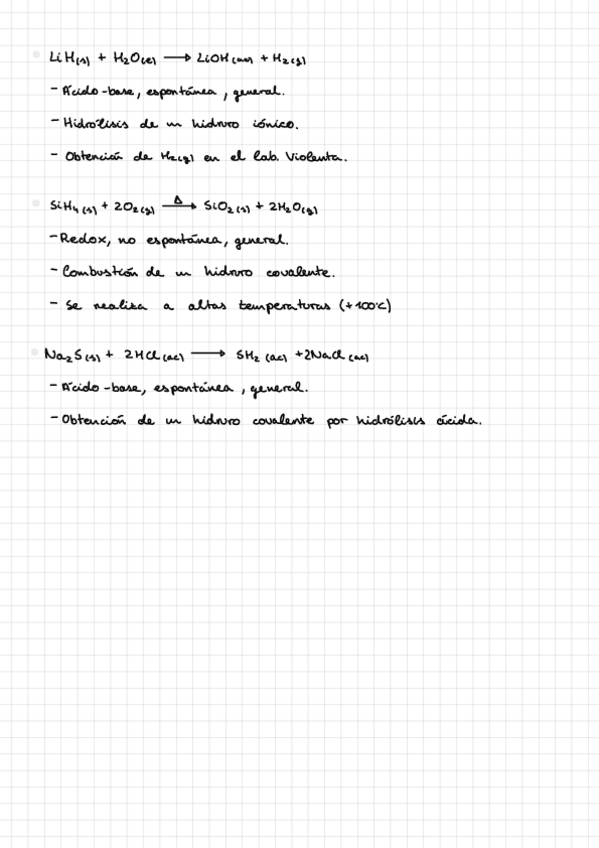 LiH(s) + H2O(l) → LiOH(ac) + H2(g)
- Ácido-base, espontánea, general.
- Hidrólisis de un hidruro iónico.
- Obtención de H2(g) en el lab. Violenta.
SiH4(s) + 2O2(g) —Δ→ SiO2(s) + 2H2O(g)
- Redox, no espontánea, general.
- Combustión de un hidruro covalente.
- Se realiza a altas temperaturas (+100°C)
Na2S(s) + 2HCl(ac) → SH2(ac) + 2NaCl(ac)
- Ácido-base, espontánea, general.
- Obtención de un hidruro covalente por hidrólisis ácida.